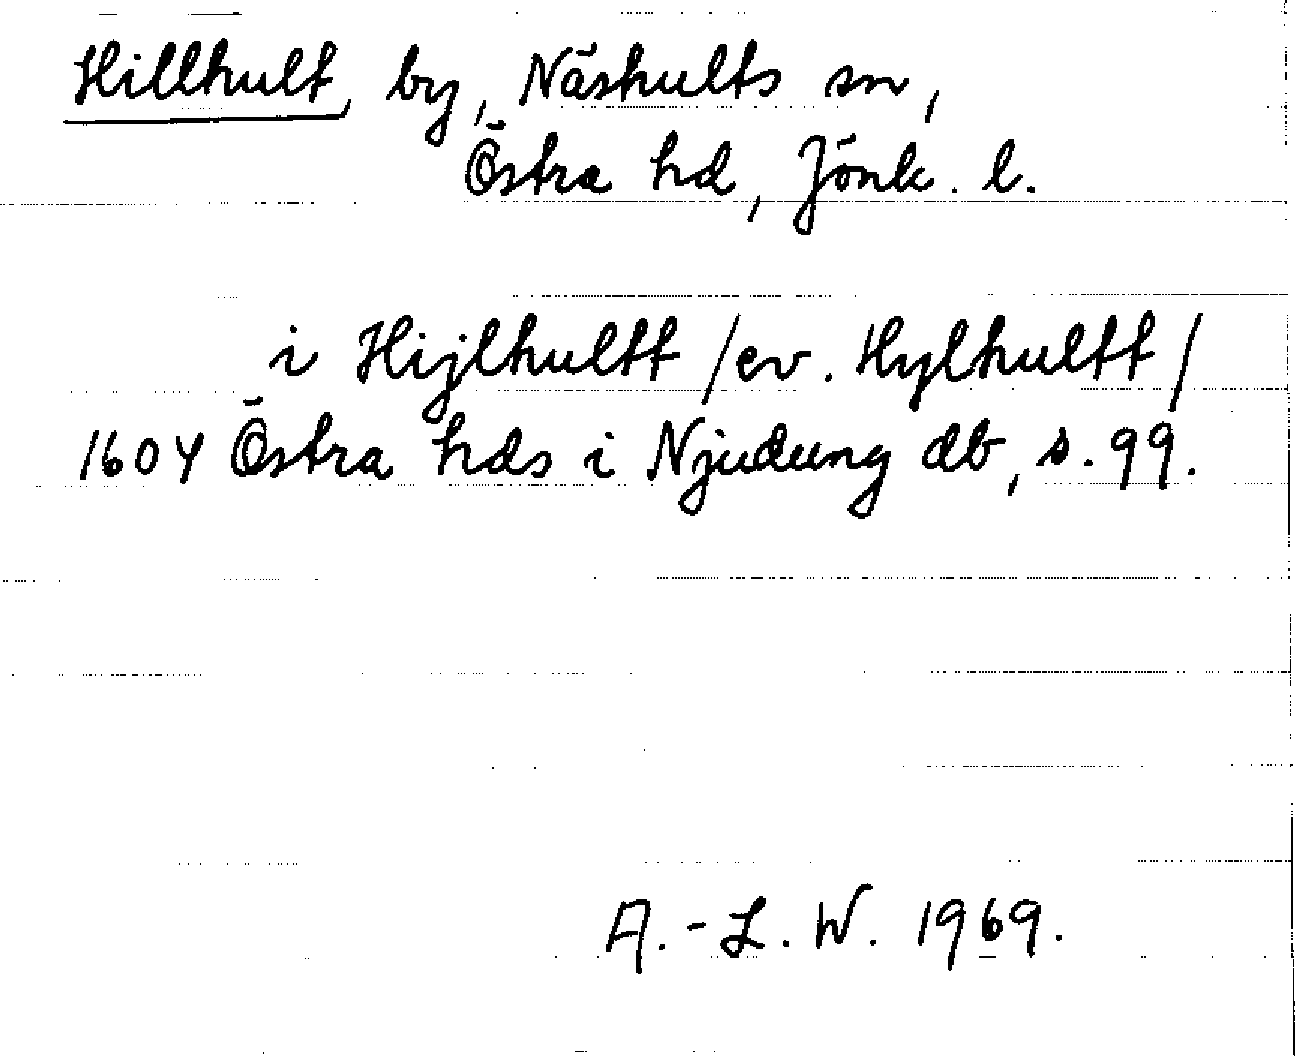 Hillhult, by, Näshults sn,
Östra hd, Jönk. l.
i Hijlhultt /ev. Hylhultt/
1604 Östra hds i Njudung db, s. 99.
A.-L. W. 1969.